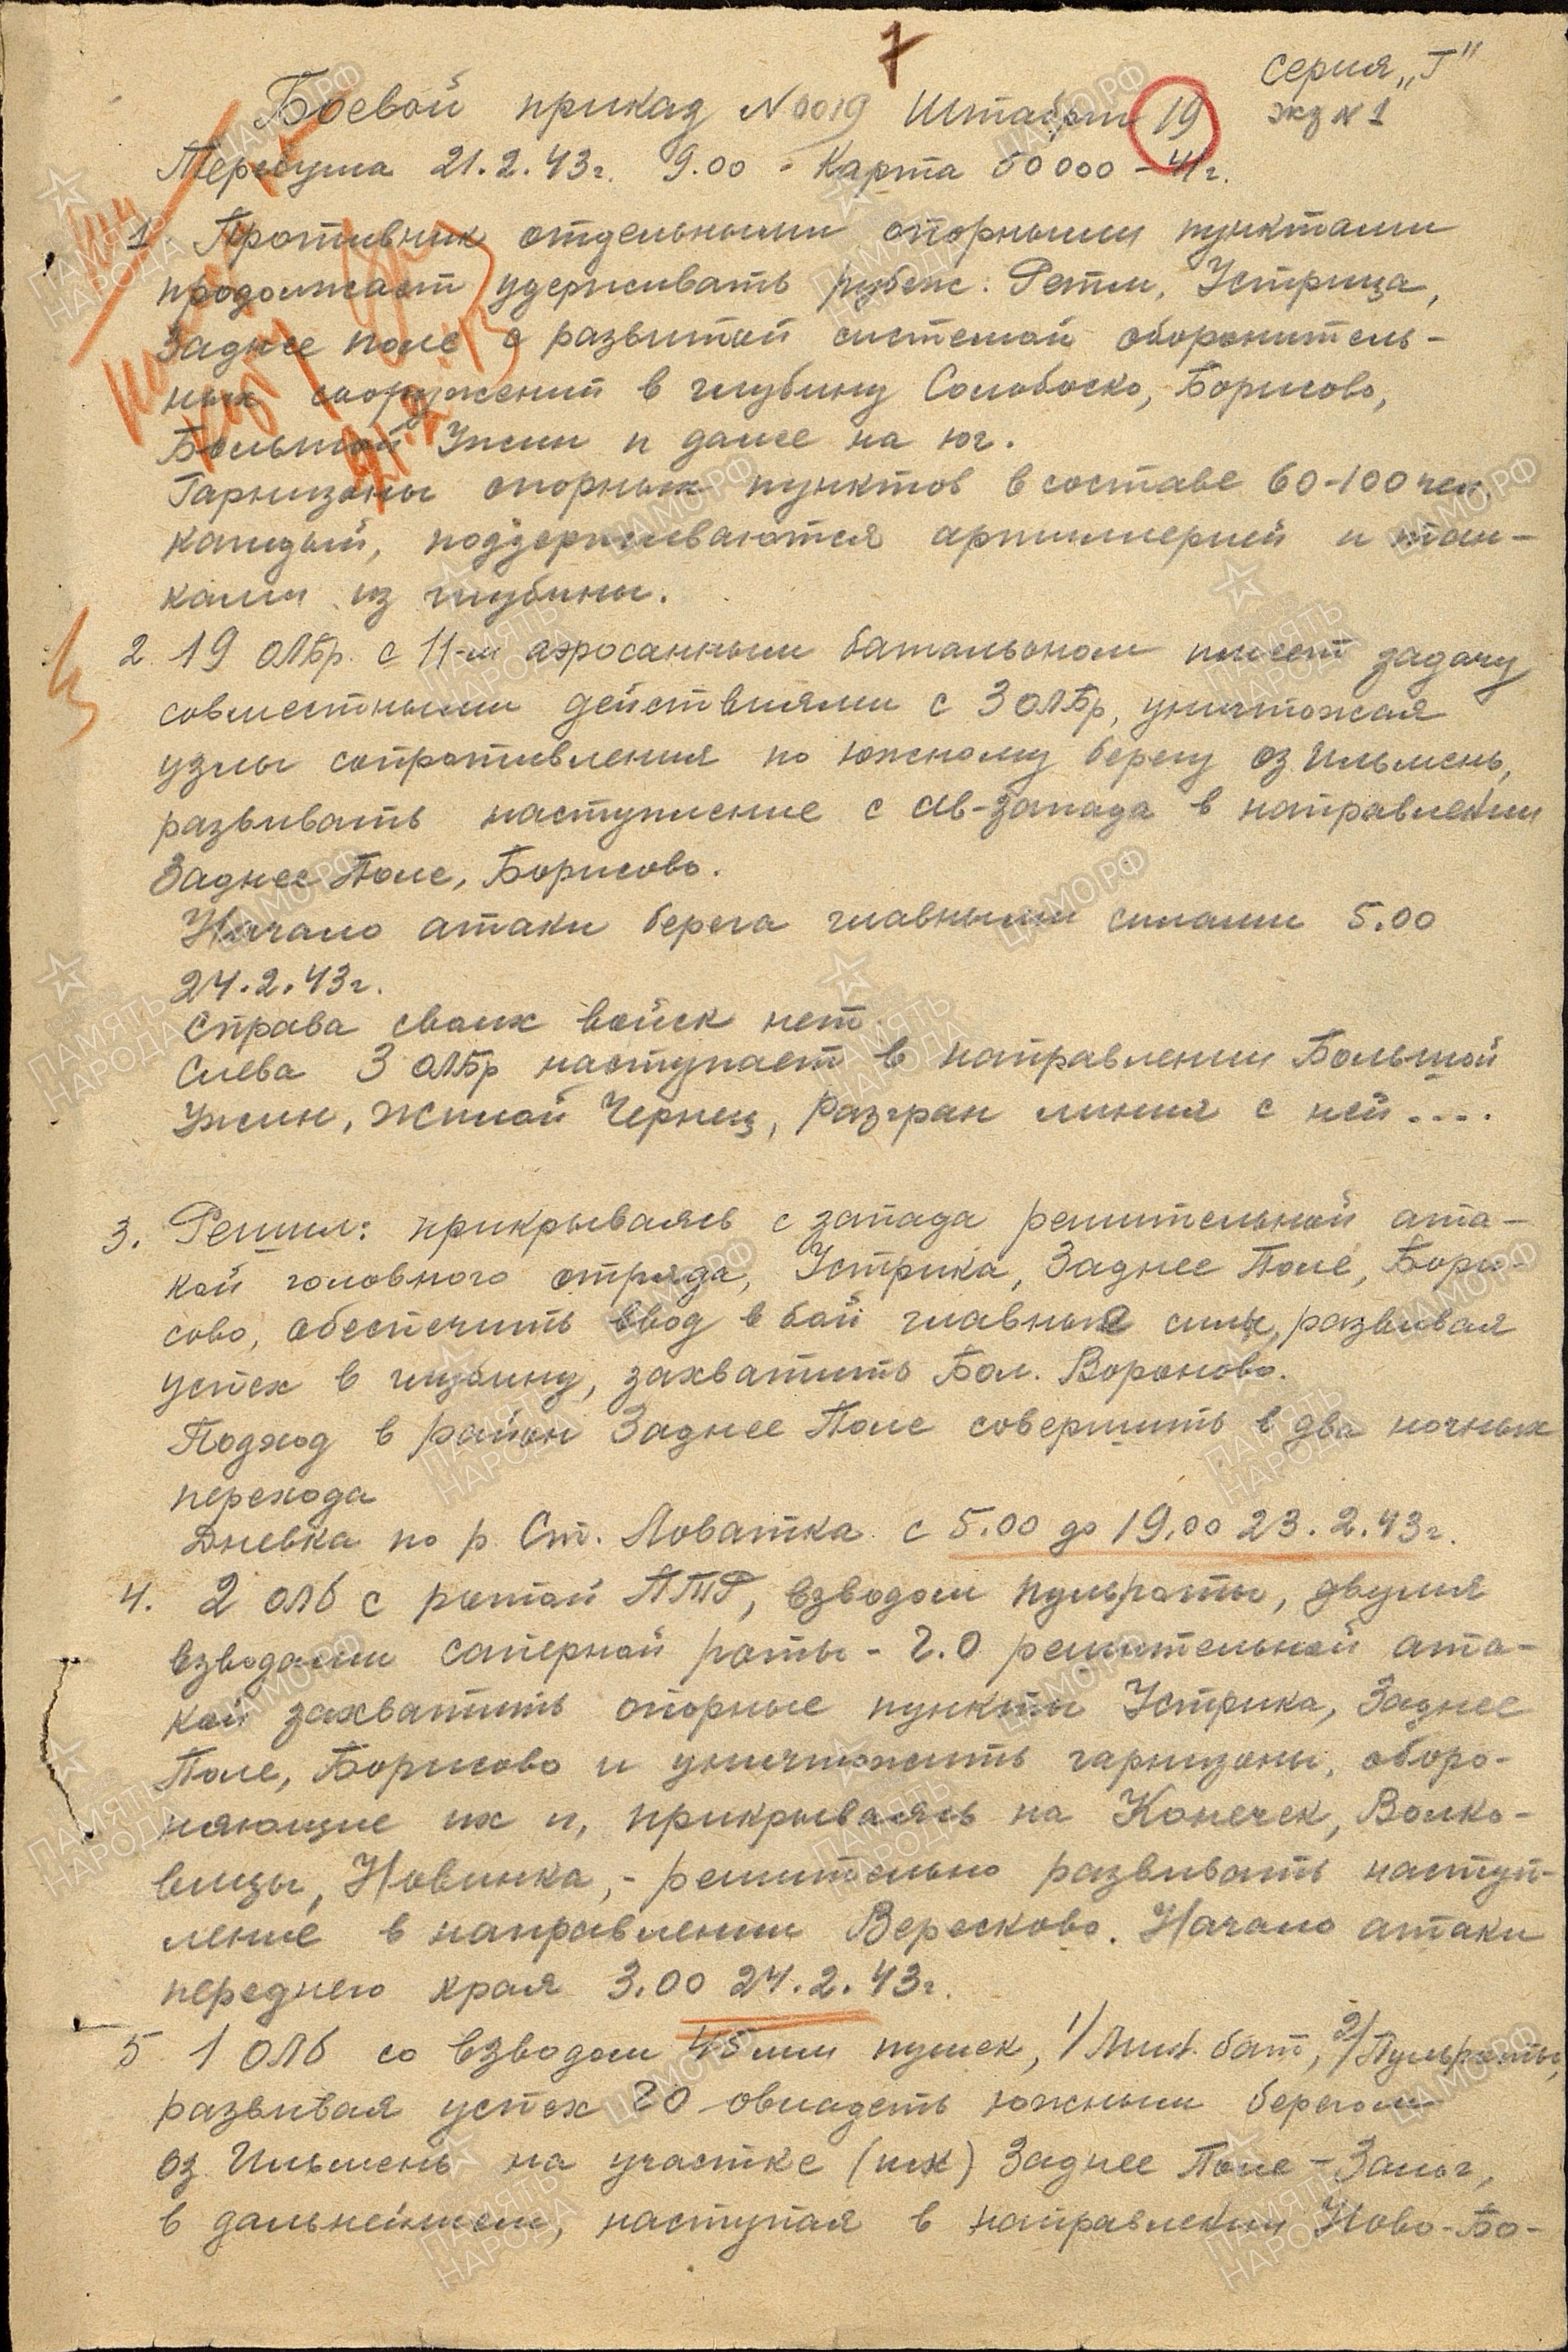 7
Серия „Г"
экз N 1
Боевой приказ N 0019 Штабриг 19
Передума 21.2.43г. 9.00 - Карта 50000 - 41г.
1 Противник отдельными опорными пунктами
продолжает удерживать рубеж: Ретли, Устрица,
Заднее поле с развитой системой оборонитель-
ных сооружений в глубину Солобоско, Борисово,
Большой Ужин и далее на юг.
Гарнизоны опорных пунктов в составе 60-100 чел.
каждый, поддерживаются артиллерией и тан-
ками из глубины.
2. 19 ОЛБр. с 11-м аэросанным батальоном имеет задачу
совместными действиями с 3 ОЛБр, уничтожая
узлы сопротивления по южному берегу оз Ильмень,
развивать наступление с св-запада в направлении
Заднее Поле, Борисово.
Начало атаки берега главными силами 5.00
24.2.43г.
Справа своих войск нет.
Слева 3 ОЛБр наступает в направлении Большой
Ужин, Жилой Чернец, разгран линия с ней ....
3. Решил: прикрываясь с запада решительной ата-
кой головного отряда, Устрика, Заднее Поле, Бори-
сово, обеспечить ввод в бой главные силы, развивая
успех в глубину, захватить Бол. Вороново.
Подход в район Заднее Поле совершить в два ночных
перехода
Дневка по р. Ст. Ловатка с 5.00 до 19.00 23.2.43г.
4. 2 ОЛБ с ротой ПТР, взводом пульроты, двумя
взводами саперной роты - Г.О решительной ата-
кой захватить опорные пункты Устрика, Заднее
Поле, Борисово и уничтожить гарнизоны, оборо-
няющие их и, прикрываясь на Конечек, Волко-
вицы, Новинка, - решительно развивать наступ-
ление в направлении Вересково. Начало атаки
переднего края 3.00 24.2.43г.
5 1 ОЛБ со взводом 45 мм пушек, 1/Мин. бат, 2/Пульроты,
развивая успех ГО овладеть южным берегом
оз. Ильмень на участке (иск) Заднее Поле - Замог,
в дальнейшем, наступая в направлении Ново-Бо-